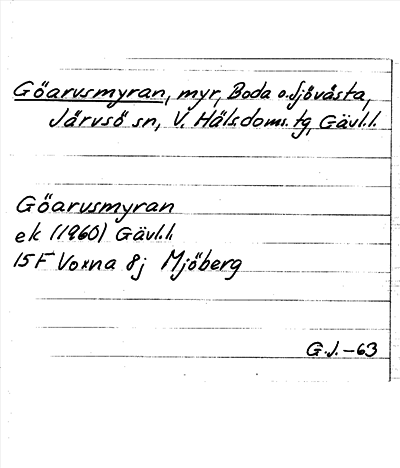 Göarvsmyran, myr, Boda o. Sjövästa,
Järvsö sn, V. Häls. doms. tg, Gävl. l.
Göarvsmyran
ek (1960) Gävl. l.
15F Voxna 8j Mjöberg
G.J.-63